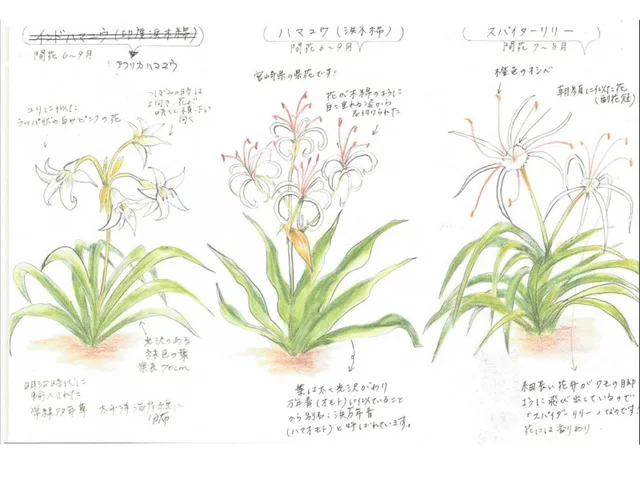 インドハマユウ(印度浜木綿)
開花6~9月
アフリカハマユウ
ユリに似た
ラッパ状の白やピンクの花
つぼみの時は
上向き、花が
咲くと横や下に
向く
光沢のある
緑色の葉
葉長70cm
明治時代に
輸入された
球根多年草 太平洋海岸線に
ハマユウ(浜木綿)
開花6~9月
宮崎県の県花です!
花が木綿のように
白く垂れる姿から
名付けられた
葉は太く光沢があり
万年青(オモト)に似ていること
から別名:浜万年青
(ハマオモト)と呼ばれています。
スパイダーリリー
開花7~8月
橙色のオシベ
朝顔に似た花
(副花冠)
細長い花弁がクモの脚
ように飛び出しているので
「スパイダーリリー」なのです!
花には香りあり